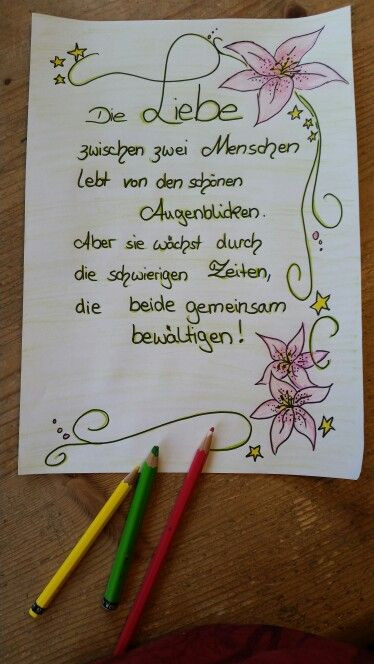 Die Liebe
zwischen zwei Menschen
lebt von den schönen
Augenblicken.
Aber sie wächst durch
die schwierigen Zeiten,
die beide gemeinsam
bewältigen!